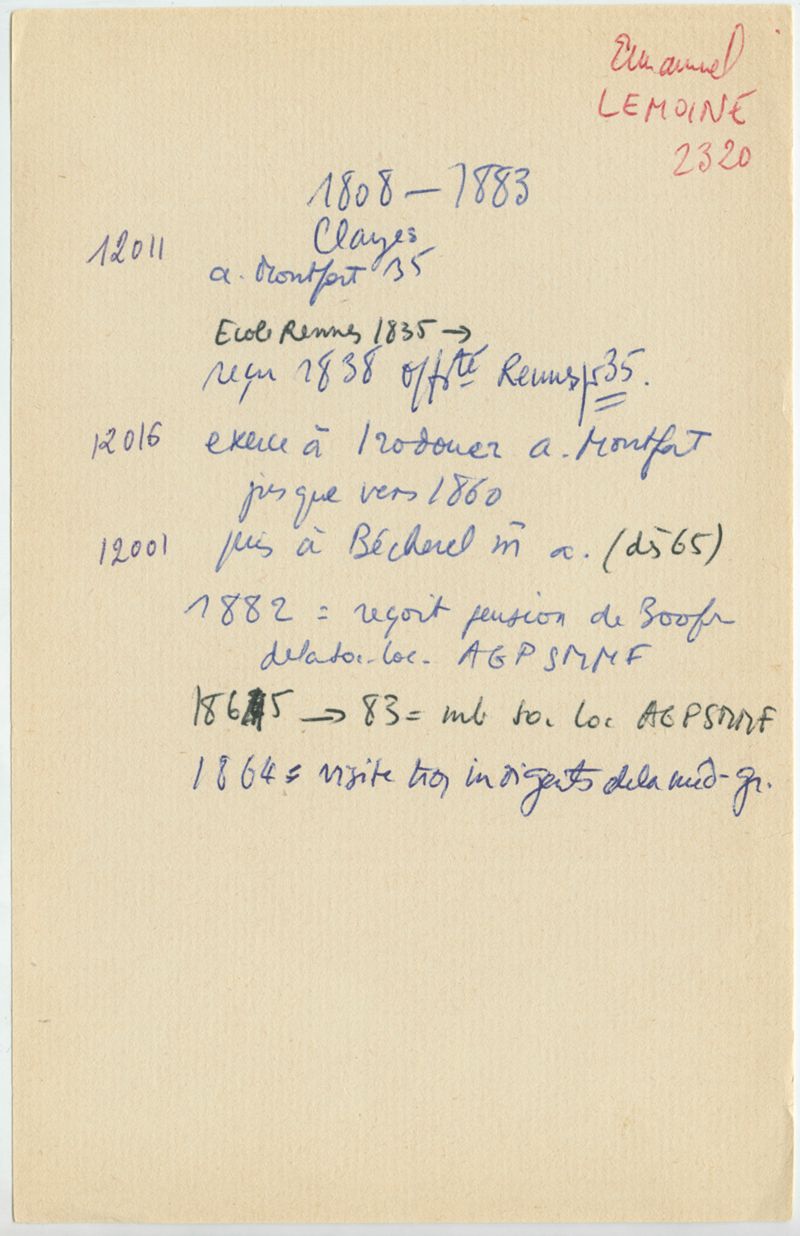 Emmanuel
LEMOINE
2320
1808 — 1883
12011 Clayes
a. Montfort 35
Ecole Rennes 1835 →
reçu 1838 off té Rennes pr 35.
12016 exerce à Irodouer a. Montfort
jusque vers 1860
12001 puis à Bécherel m̄ a. (dès 65)
1882 = reçoit pension de 300 fr
de la soc. loc. AGPSMMF
1865 → 83 = mb soc loc AGPSMMF
1864 = visite indigents de la méd-gr.